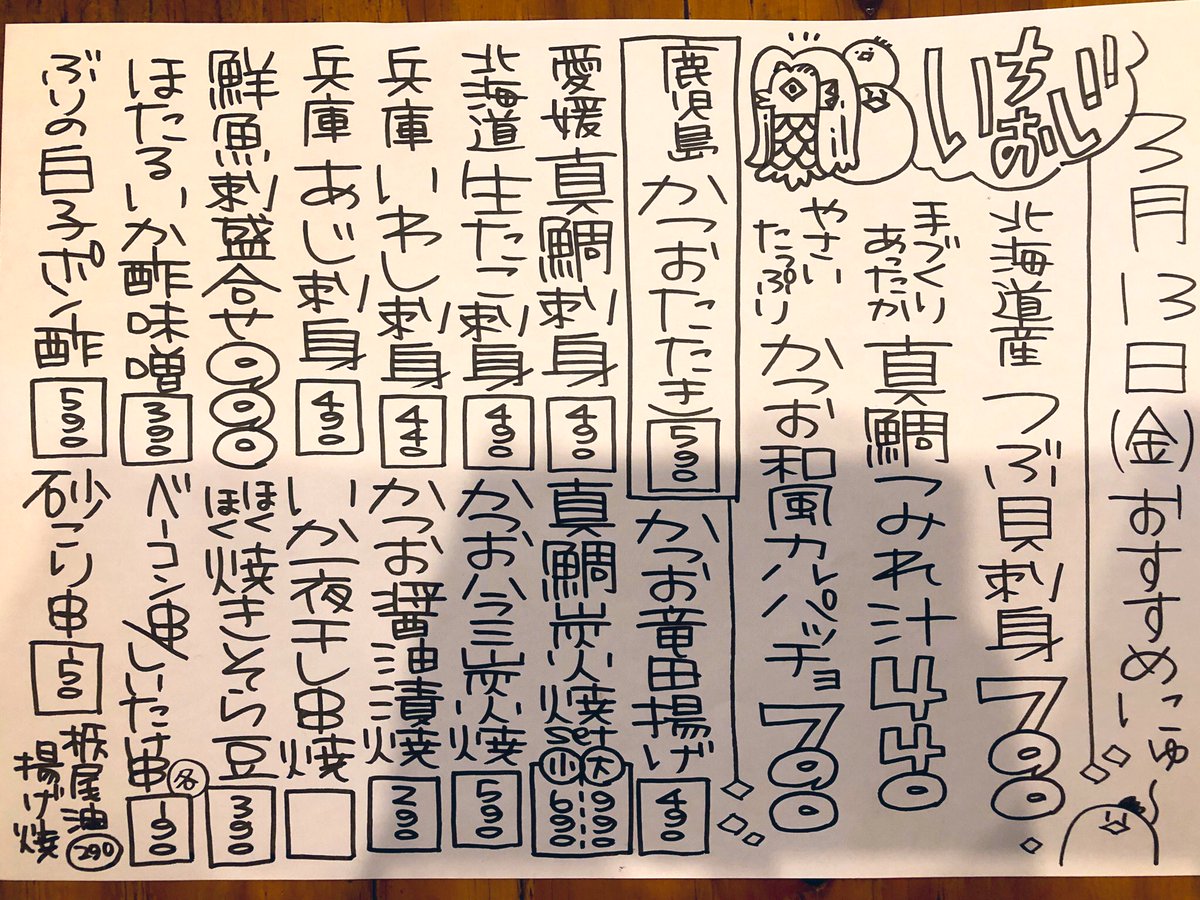 3月13日(金)おすすめにゅ〜
いちおし
北海道産 つぶ貝刺身 790
手づくり
あったか
真鯛つみれ汁 440
やさい
たっぷり
かつお和風カルパッチョ 790
鹿児島 かつおたたき 590
かつお竜田揚げ 490
愛媛 真鯛刺身 490
真鯛炭火焼set 大990 小590
北海道 生たこ刺身 490
かつおハラミ炭火焼 590
兵庫 いわし刺身 440
かつお醤油漬焼 390
兵庫 あじ刺身 490
いか一夜干し串焼
鮮魚刺盛合せ 990
ほくほく焼きそら豆 390
ほたるいか酢味噌 390
ベーコン串/しいたけ串 各190
ぶりの白子ポン酢 590
砂こり串 150
栃尾油
揚げ焼 290